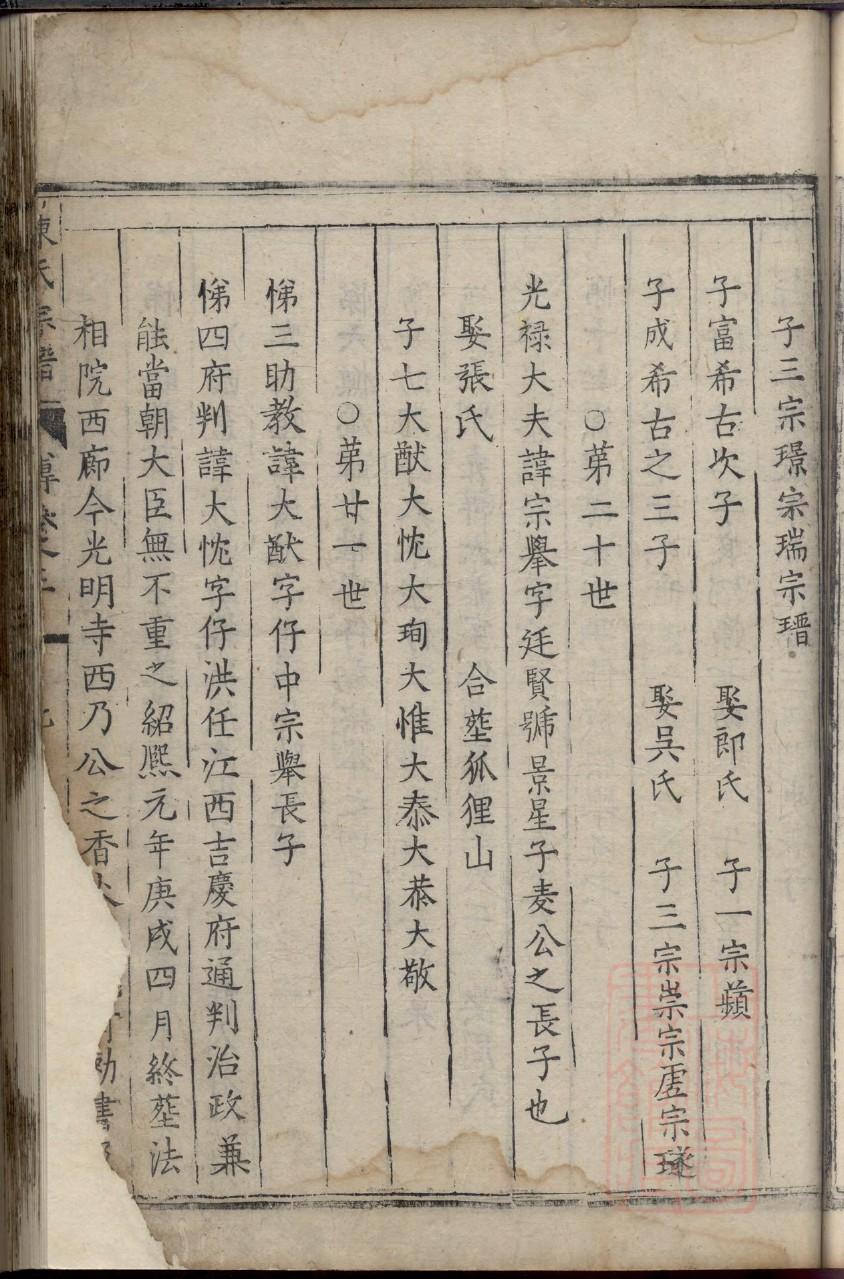 子三宗璟宗瑞宗瑨
子富希古次子 娶郎氏 子一宗蘋
子成希古之三子 娶吳氏 子三宗崇宗虗宗璲
○苐二十世
光禄大夫諱宗舉字廷賢號景星子麦公之長子也
娶張氏 合塟狐狸山
子七大猷大忱大珣大惟大泰大恭大敬
○苐廿一世
悌三助教諱大猷字仔中宗舉長子
悌四府判諱大忱字仔洪任江西吉慶府通判治政兼
能當朝大臣無不重之紹熈元年庚戌四月終塟法
相院西廊今光明寺西乃公之香火
勅書
陳氏宗譜